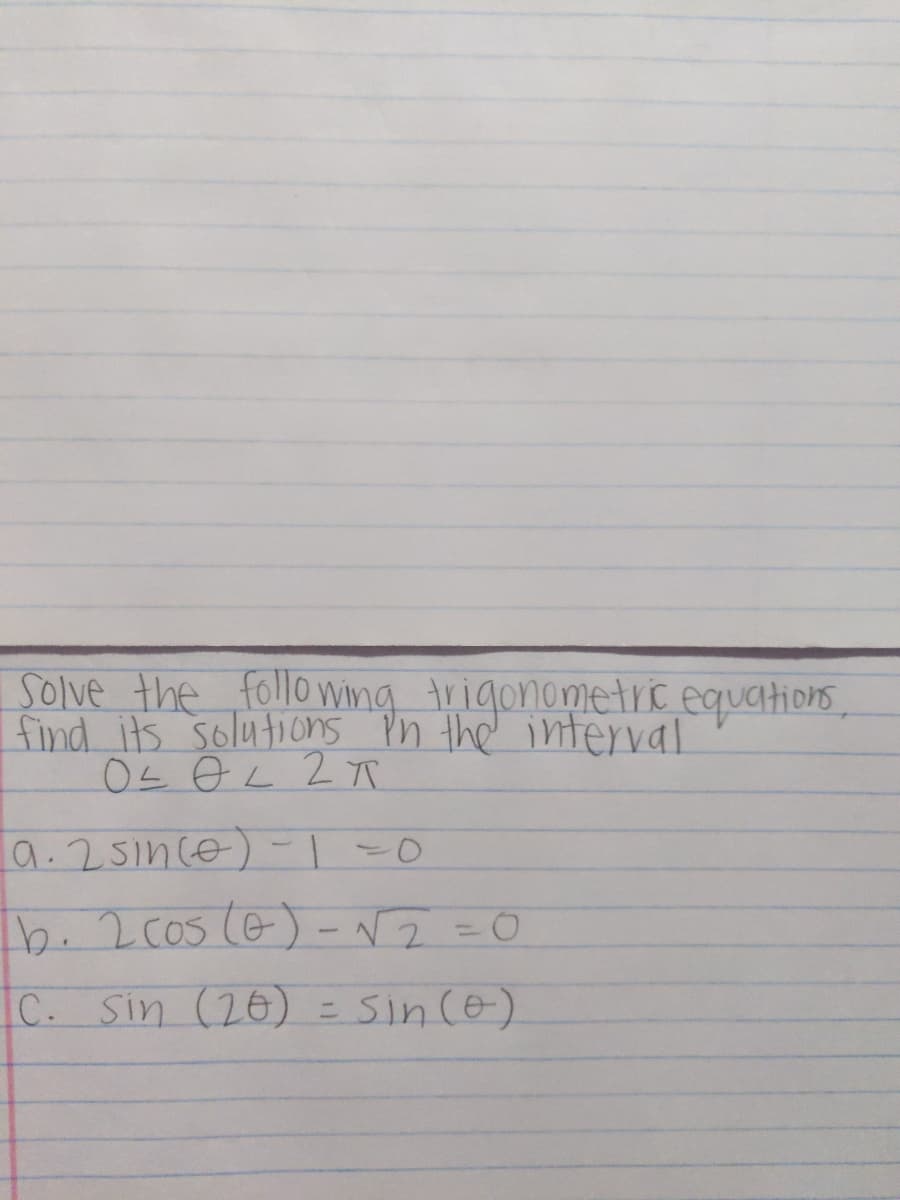 Solve the following trigonometric equations,
find its solutions in the interval
0≤ θ < 2π
a. 2 sin(θ) - 1 = 0
b. 2 cos (θ) - √2 = 0
C. sin (2θ) = sin(θ)